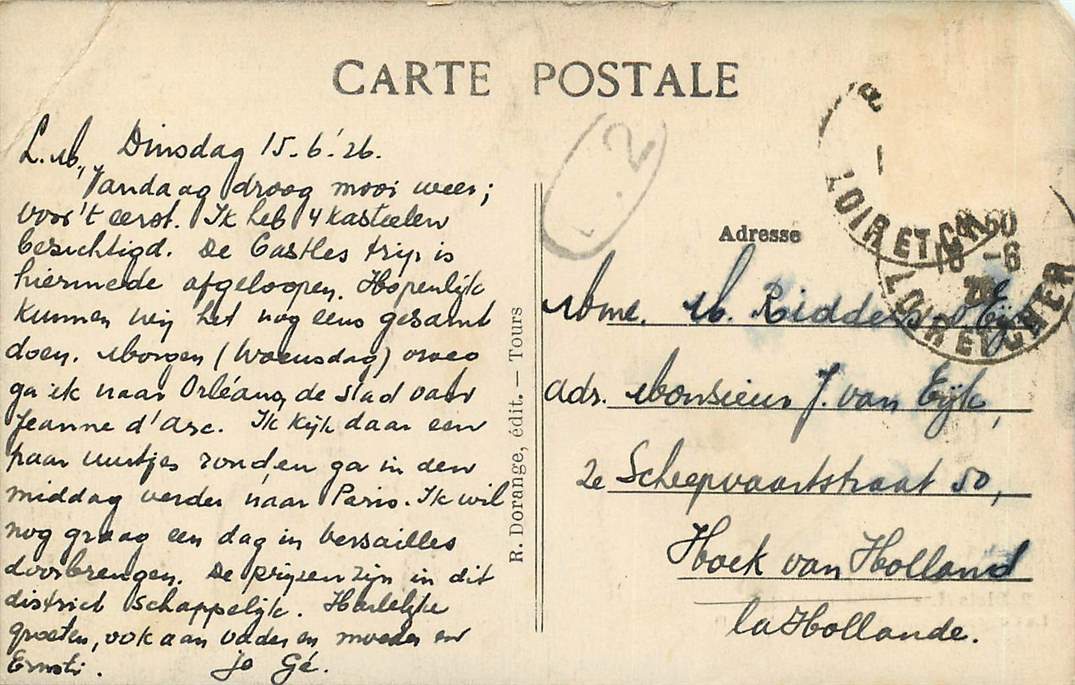 CARTE POSTALE
L. M., Dinsdag 15.6.'26.
Vandaag droog mooi weer;
voor 't eerst. Ik heb 4 kasteelen
bezichtigd. De Castles trip is
hiermede afgeloopen. Hopenlijk
kunnen wij het nog eens gesamt
doen. Morgen (Woensdag) vroeg
ga ik naar Orléans, de stad van
Jeanne d'Arc. Ik kijk daar een
paar uurtjes rond en ga in den
middag verder naar Paris. Ik wil
nog graag een dag in Versailles
doorbrengen. De prijzen zijn in dit
district schappelijk. Hartelijke
groeten, ook aan vader en moeder en
Ernsti. Gé.
R. Dorange, édit. — Tours
2
LOIR ET CHER
LOIR ET CHER
Adresse
Mme. M. Ridders
adr. Monsieur J. van Eijk,
2e Scheepvaartstraat 50,
Hoek van Holland
la Hollande.